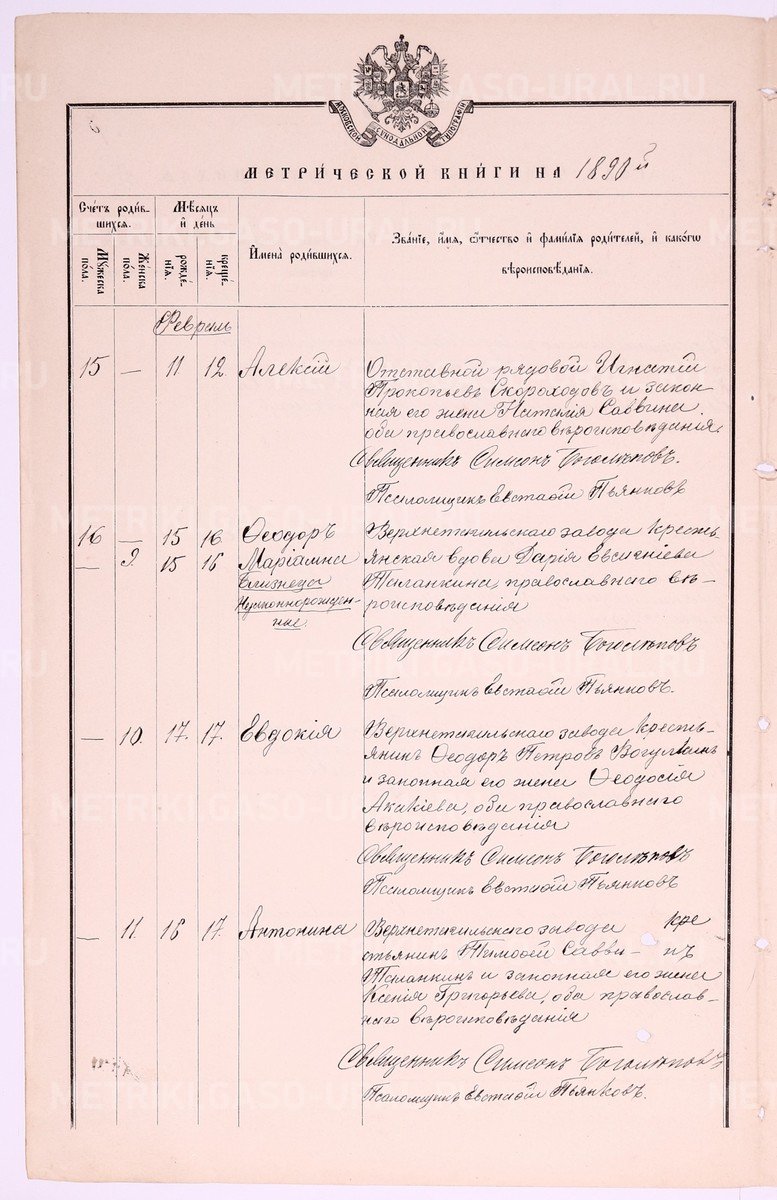 МОСКОВСКОЙ СѴНОДАЛЬНОЙ ТИПОГРАФІИ
МЕТРИ́ЧЕСКОЙ КНИ́ГИ НА 1890й
Сче́тъ роди́в-
шихся.
Му́жеска
по́ла.
Же́нска
по́ла.
Мѣ́сяцъ
и҆ де́нь
рожде́-
нїя.
креще́-
нїя.
И҆мена̀ роди́вшихся.
Зва́нїе, и҆́мѧ, ѻ҆́тчество и҆ фами́лїѧ роди́телей, и҆ како́гѡ
вѣроисповѣ́данїѧ.
Февраль
15 — 11 12 Алексій Отставной рядовой Игнатій
Прокопьевъ Скороходовъ и закон-
ная его жена Наталія Саввина
оба православнаго вѣроисповѣданія
Священникъ Симеонъ Боголѣповъ.
Псаломщикъ Евстаѳій Пьянковъ
16 — 15 16 Ѳеодоръ Верхнетагильскаго завода кресть-
— 9. 15 16 Маріамна янская вдова Дарія Евсигніева
Близнецы Таланкина, православнаго вѣ-
Незаконнорожден- роисповѣданія
ные.
Священникъ Симеонъ Боголѣповъ
Псаломщикъ Евстаѳій Пьянковъ.
— 10. 17. 17. Евдокія Верхнетагильскаго завода кресть-
янинъ Ѳеодоръ Петровъ Вогулкинъ
и законная его жена Ѳеодосія
Акакіева, оба православнаго
вѣроисповѣданія
Священникъ Симеонъ Боголѣповъ
Псаломщикъ Евстаѳій Пьянковъ
— 11. 16 17. Антонина Верхнетагильскаго завода кре
стьянинъ Тимоѳей Савви- нъ
Таланкинъ и законная его жена
Ксенія Григорьева, оба православ-
наго вѣроисповѣданія
Священникъ Симеонъ Боголѣповъ
Псаломщикъ Евстаѳій Пьянковъ.
METRIKI.GASO-URAL.RU